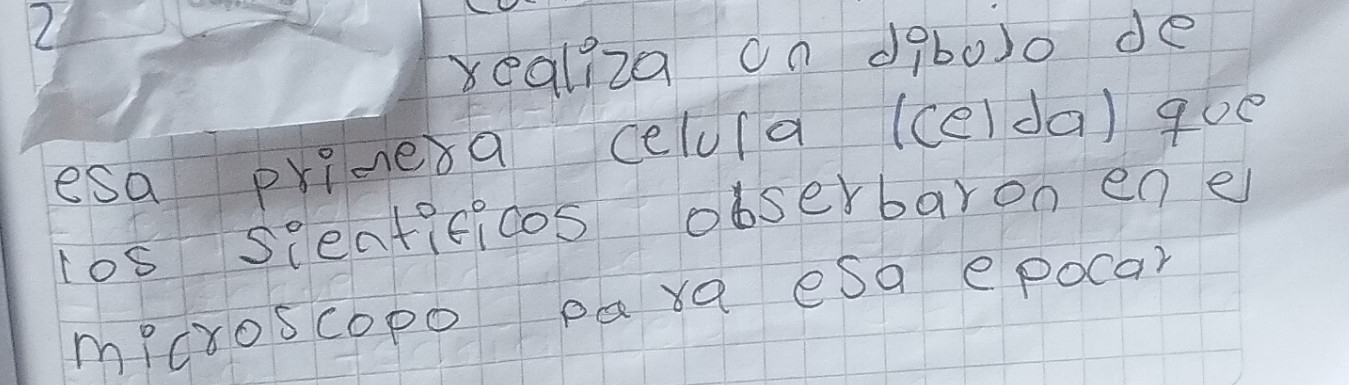 2
realiza un dibujo de
esa primera celula (celda) que
los sientificos obserbaron en el
microscopo para esa epocar